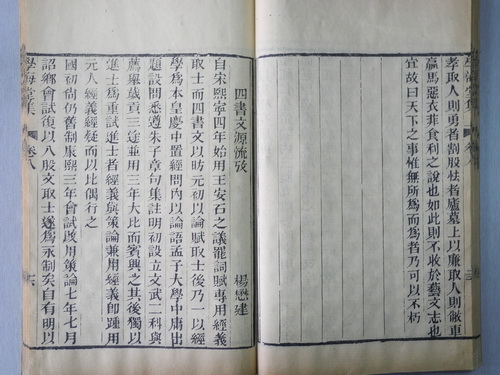 孝取人則勇者割股怯者廬墓上以廉取人則敝車
羸馬惡衣菲食利之說也如此則不收於藝文志也
宜故曰天下之事惟無所爲而爲者乃可以不朽
四書文源流攷
楊懋建
自宋熙寧四年始用王安石之議罷詞賦專用經義
取士而四書文以昉元初以論賦取士後乃一以經
學爲本皇慶中置經問內以論語孟子大學中庸出
題設問悉遵朱子章句集註明初設立文武二科與
薦舉歲貢三途並用三年大比而賓興之其後獨以
進士爲重試進士者經義與策論兼用經義卽踵用
元人經義經疑而以比偶行之
國初尙仍舊制康熙三年會試改用策論七年七月
詔鄉會試後以八股文取士遂爲永制矣自有明以
學海堂集
卷八